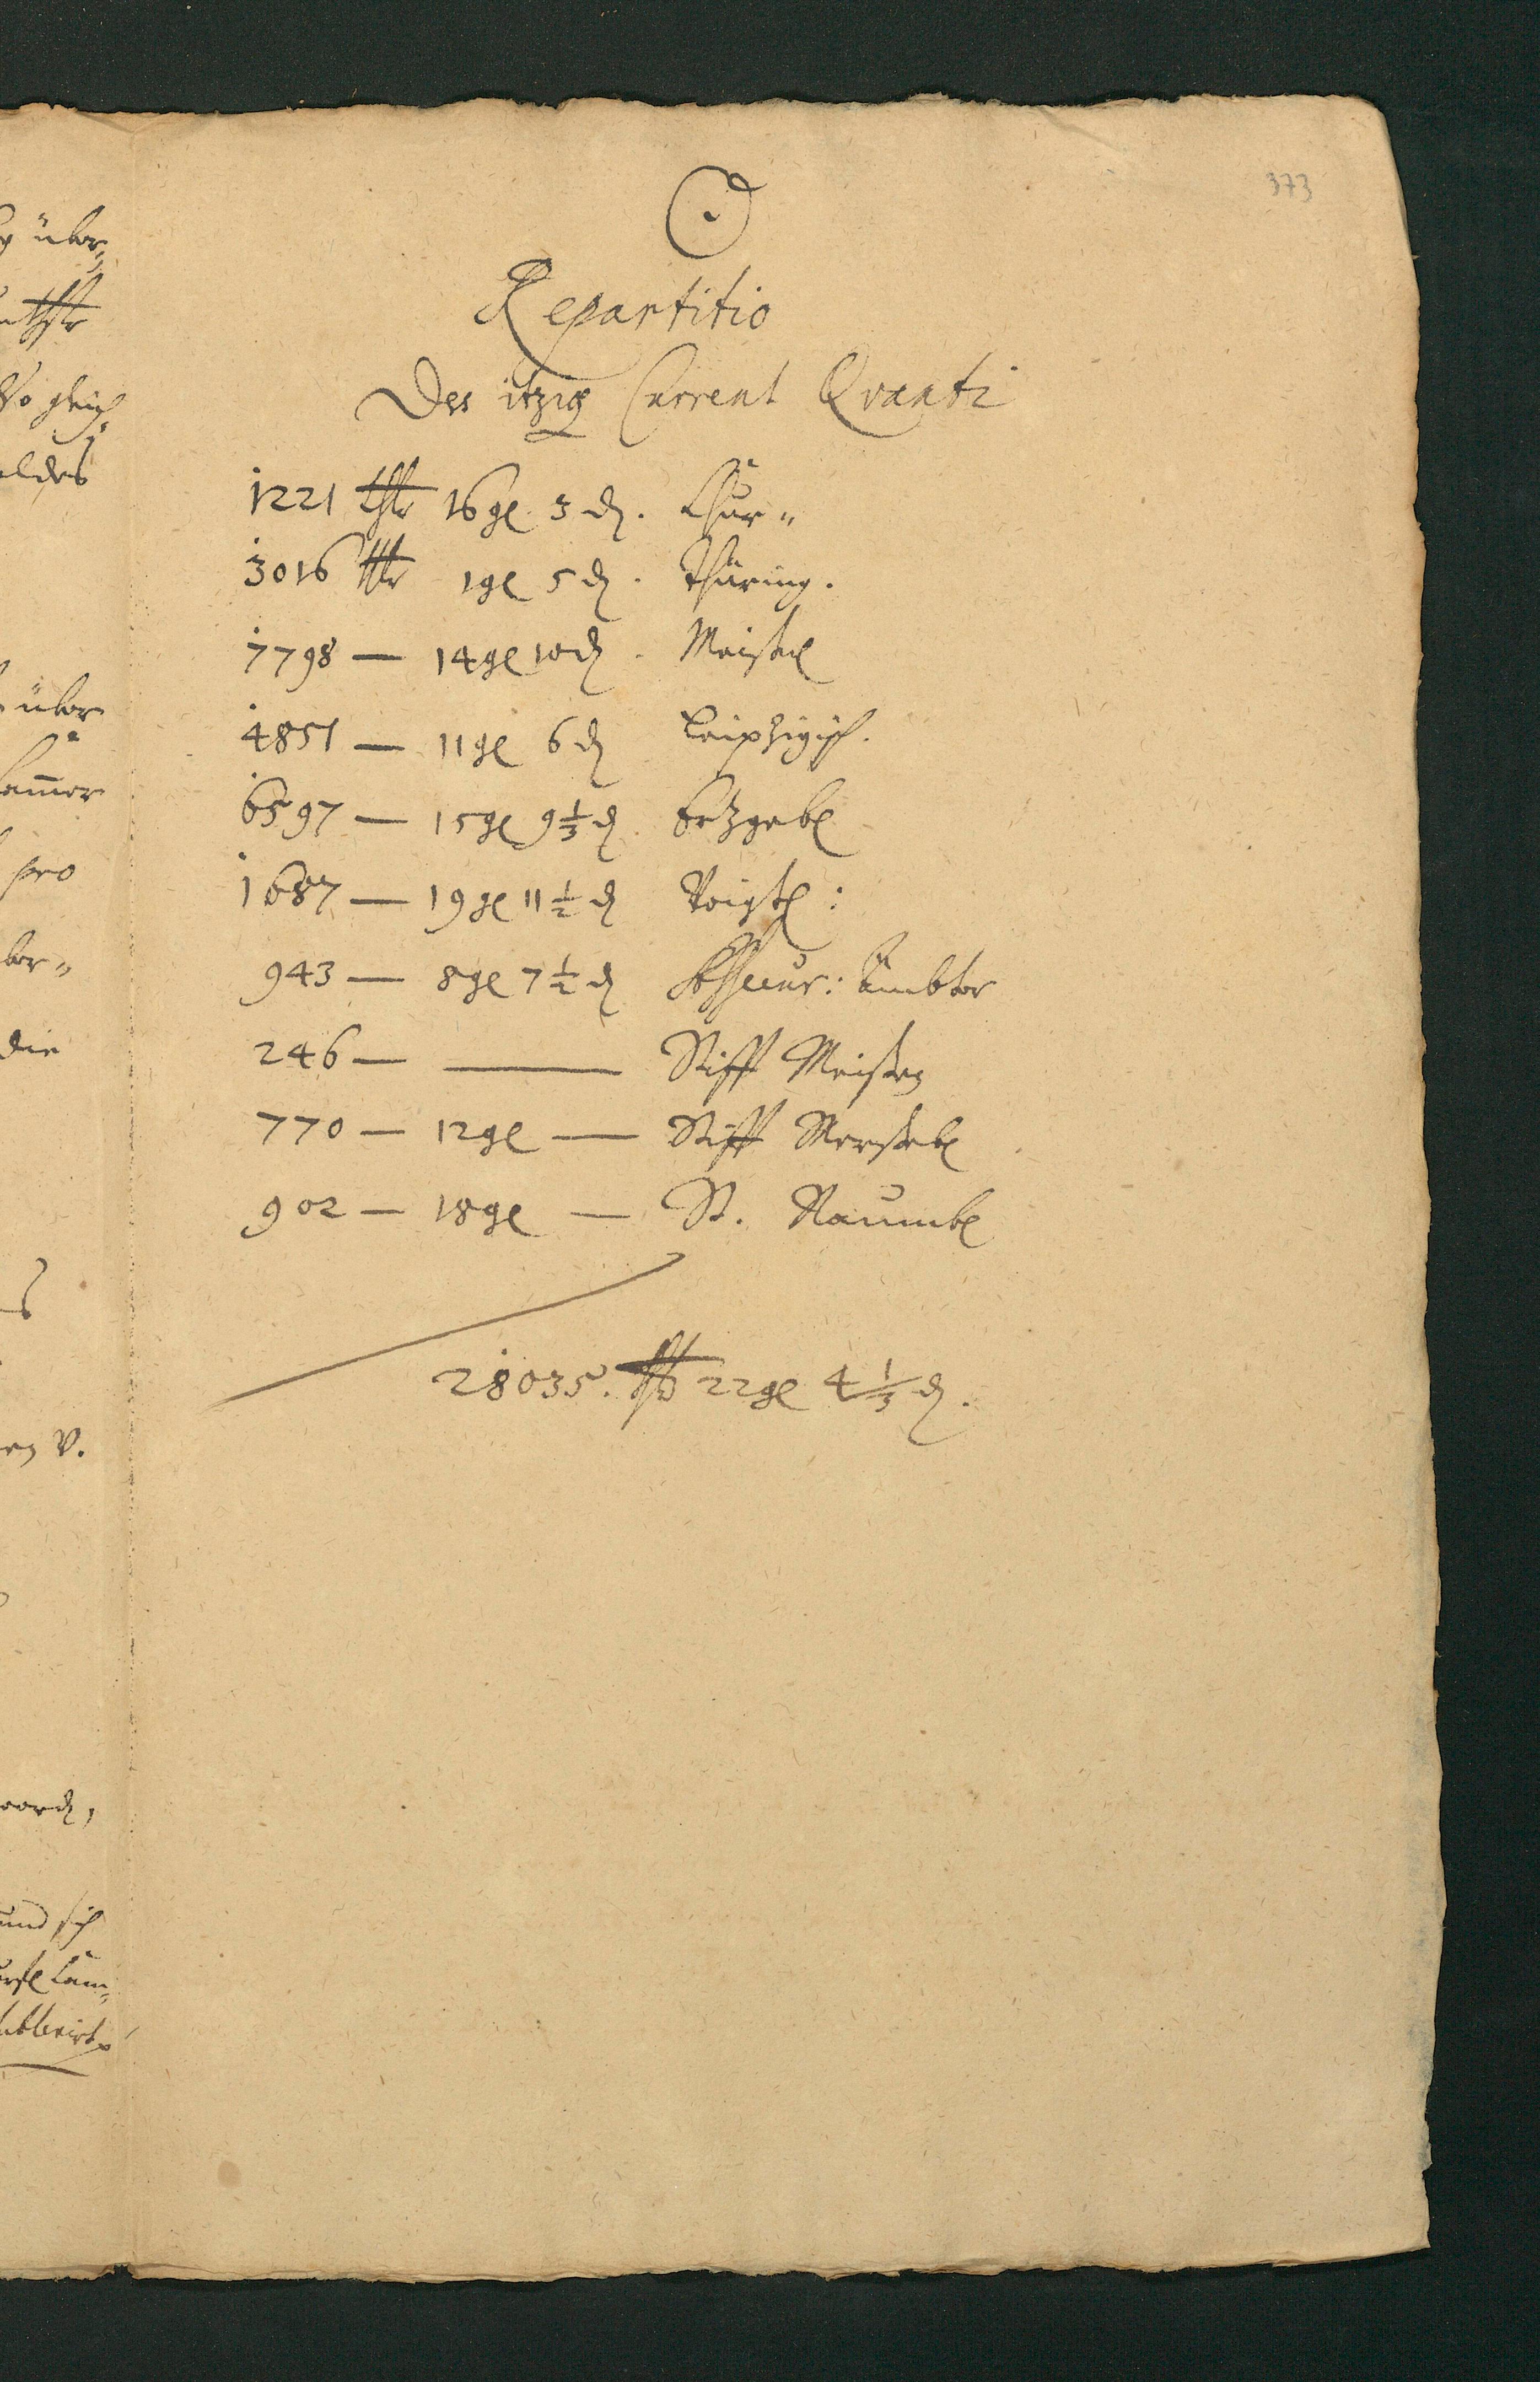 373
☉
Repartitio
Des itzig Current Qvanti
1221 thlr 16 gl 3 d. Chur-
3016 thlr 1 gl 5 d. Thüring.
7798 — 14 gl 10 d. Meisn
4851 — 11 gl 6 d Leipzigisch.
6597 — 15 gl 9 1/3 d. Ertzgeb
1687 — 19 gl 11 1/2 d Voigtl:
943 — 8 gl 7 1/2 d Assecur: Ämbter
246 — — Stifft Meißen
770 — 12 gl — Stifft Merseb
902 — 18 gl — St. Naumb
28035. thlr 22 gl 4 1/3 d.
über
thlr
gleich
über
pro
die
und sich